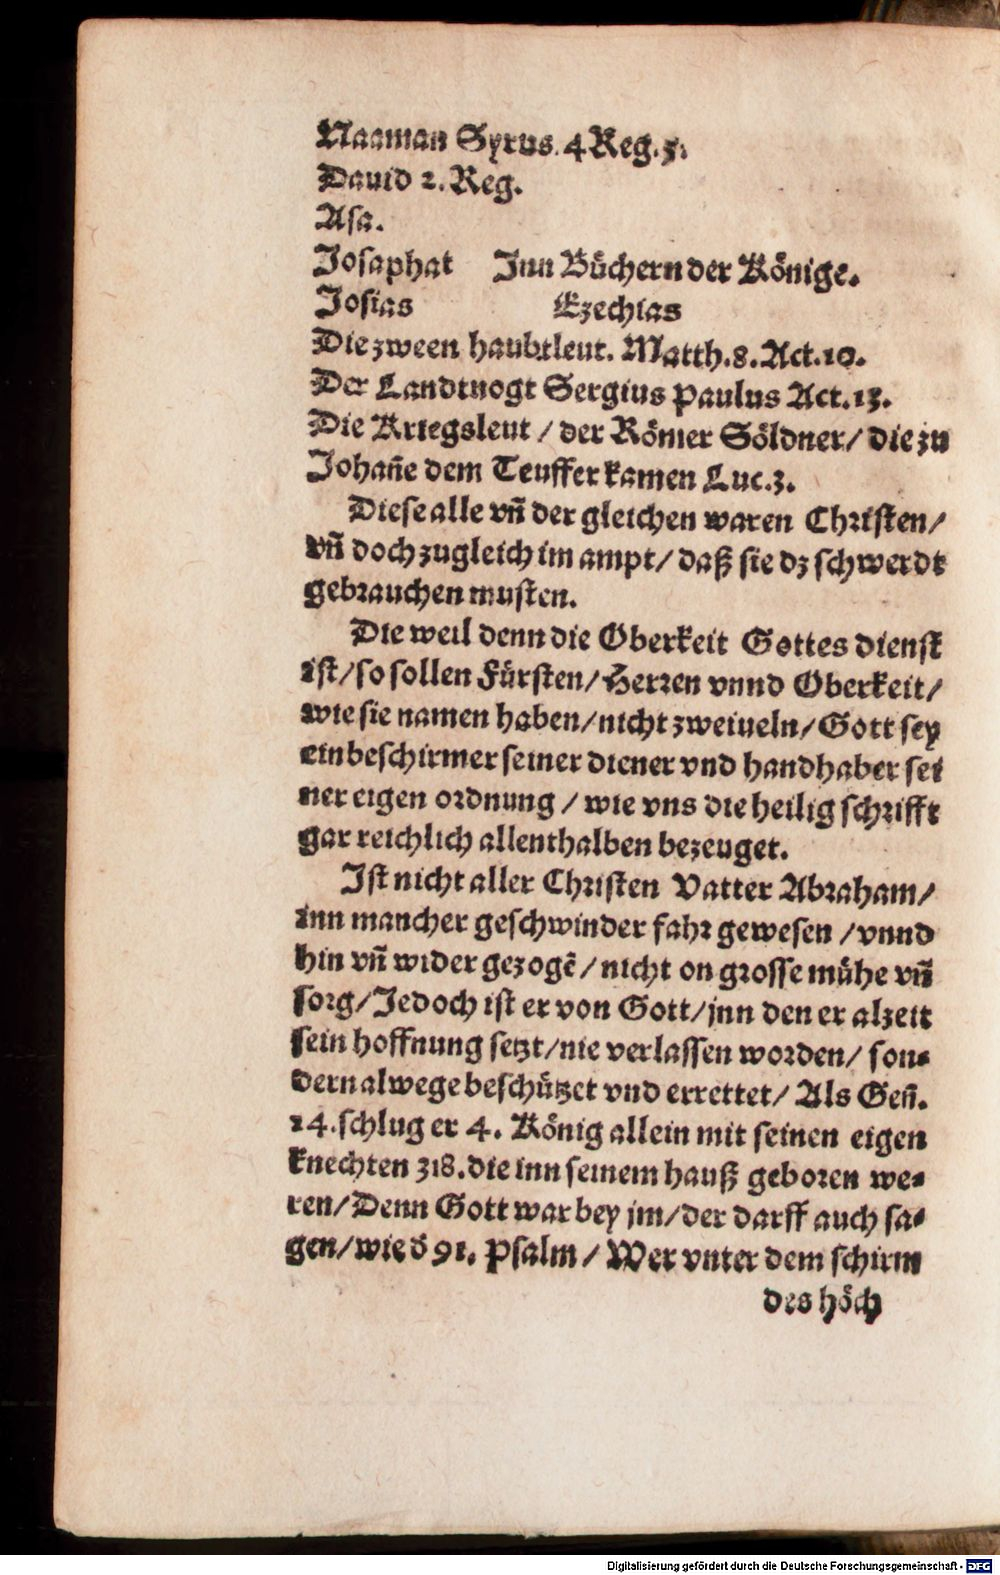 Naaman Syrus. 4 Reg. 5.
Dauid 2. Reg.
Asa.
Josaphat Jnn Bůchern der Könige.
Josias Ezechias
Die zween haubtleut. Matth. 8. Act. 10.
Der Landtuogt Sergius Paulus Act. 13.
Die Kriegsleut / der Römer Söldner / die zu
Johañe dem Teuffer kamen Luc. 3.
Diese alle vñ der gleichen waren Christen /
vñ doch zugleich im ampt / daß sie dz schwerdt
gebrauchen musten.
Die weil denn die Oberkeit Gottes dienst
ist / so sollen Fürsten / Herren vnnd Oberkeit /
wie sie namen haben / nicht zweiueln / Gott sey
ein beschirmer seiner diener vnd handhaber sei
ner eigen ordnung / wie vns die heilig schrifft
gar reichlich allenthalben bezeuget.
Jst nicht aller Christen Vatter Abraham /
inn mancher geschwinder fahr gewesen / vnnd
hin vñ wider gezogẽ / nicht on grosse mühe vñ
sorg / Jedoch ist er von Gott / jnn den er alzeit
sein hoffnung setzt / nie verlassen worden / son-
dern alwege beschützet vnd errettet / Als Geñ.
14. schlug er 4. König allein mit seinen eigen
knechten 318. die inn seinem hauß geboren we-
ren / Denn Gott war bey jm / der darff auch sa-
gen / wie d̃ 91. Psalm / Wer vnter dem schirm
des höch
Digitalisierung gefördert durch die Deutsche Forschungsgemeinschaft - DFG